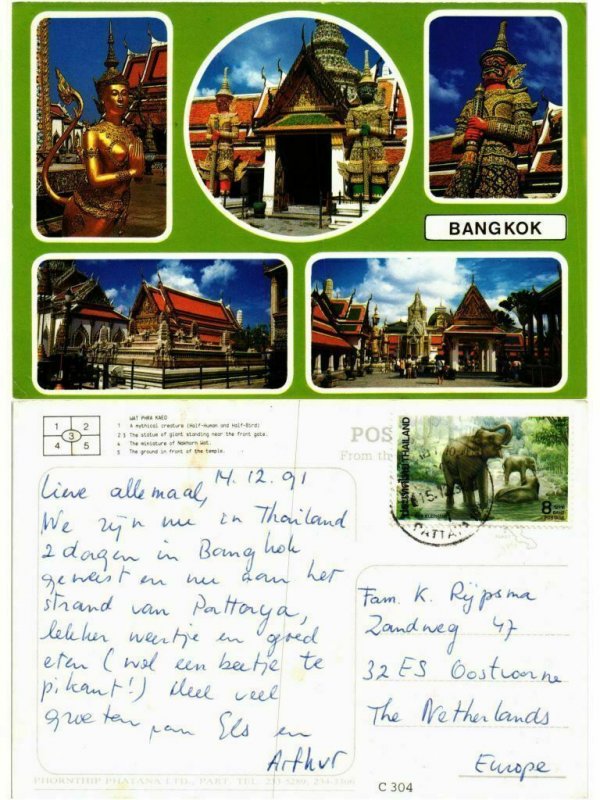 BANGKOK
1 2
3
4 5
WAT PHRA KAEO
1 A mythical creature (Half-Human and Half-Bird)
2 3 The statue of giant standing near the front gate.
4 The miniature of Nakhorn Wat.
5 The ground in front of the temple.
POS
From the
THAILAND
8
PATTAYA
14.12.91
Lieve allemaal,
We zijn nu in Thailand
2 dagen in Bangkok
geweest en nu aan het
strand van Pattaya,
lekker weertje en goed
eten (wel een beetje te
pikant!) Heel veel
groeten van Els en
Arthur
Fam. K. Rijpsma
Zandweg 47
32 ES Oostvoorne
The Netherlands
Europe
PHORNTHIP PHATANA LTD., PART. TEL. 233-5289, 234-3306
C 304